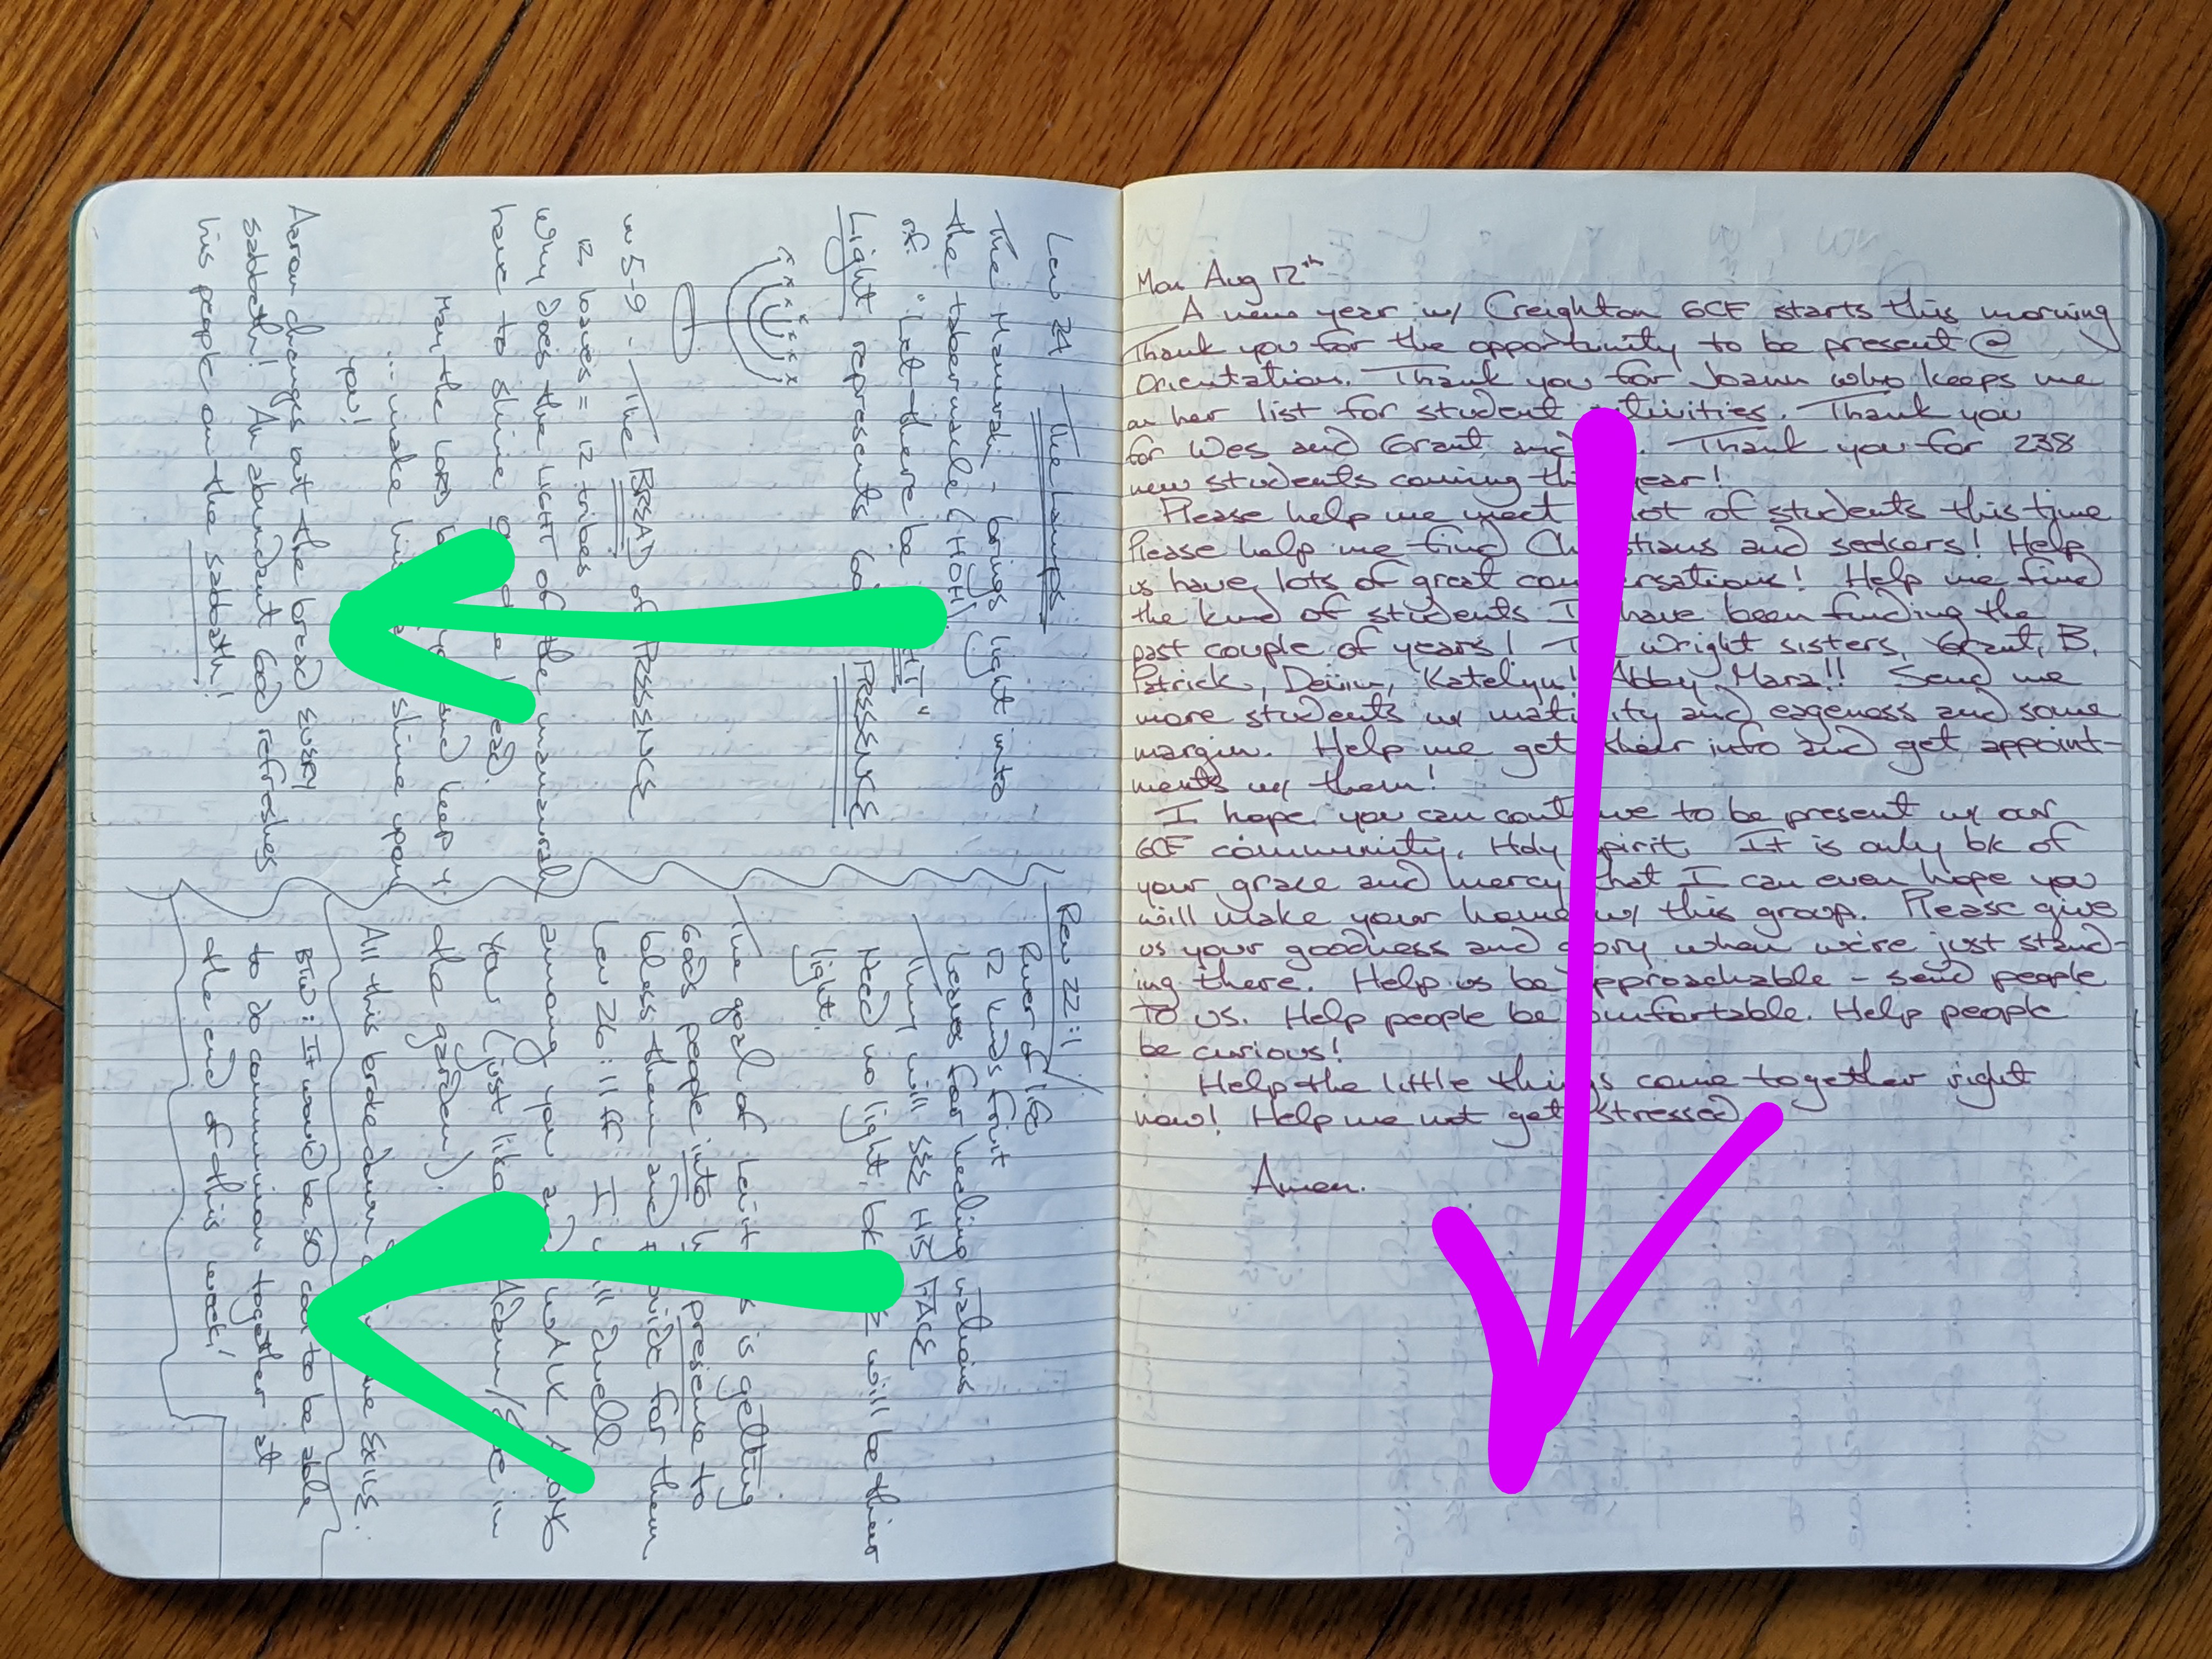 Lev 24 The Lamps
The Manorah - brings light into
the tabernacle (HOH)
of "Let there be
Light represents God PRESENCE
vv 5-9 - The BREAD of PRESSENCE
12 loaves = 12 tribes
Why does the LIGHT of the manorah
have to shine on the bread?
May the LORD bless you and keep y.
... make his face shine upon
you!
Aaron changes out the bread every
sabbath! An abundant God refreshes
his people on the sabbath!
Rev 22:1
River of life
12 kinds fruit
Leaves for healing nations
They will SEE HIS FACE
Need no light, bk will be their
light.
The goal of Leviticus is getting
God's people into his presence to
bless them and provide for them
Lev 26:11 ff I will dwell
among you and WALK
You (just like Adam/Eve in
the garden).
All this broke down EXILE.
BTW: It would be so cool to be able
to do communion together at
the end of this week!
Mon Aug 12th
A new year w/ Creighton GCF starts this morning
Thank you for the opportunity to be present @
Orientation. Thank you for Joann who keeps me
on her list for student activities. Thank you
for Wes and Grant and Thank you for 238
new students coming this year!
Please help me meet lot of students this time
Please help me find Christians and seekers! Help
us have lots of great conversations! Help me find
the kind of students I have been finding the
past couple of years! The Wright sisters, Grant, B,
Patrick, Katelyn! Abby, Mara!! Send me
more students w/ maturity and eageness and some
margin. Help me get their info and get appoint-
ments w/ them!
I hope you can continue to be present w/ our
GCF community, Holy Spirit. It is only bk of
your grace and mercy that I can even hope you
will make your home w/ this group. Please give
us your goodness and glory when we're just stand-
ing there. Help us be approachable - send people
to us. Help people be comfortable. Help people
be curious!
Help the little things come together right
now! Help me not get stressed
Amen.